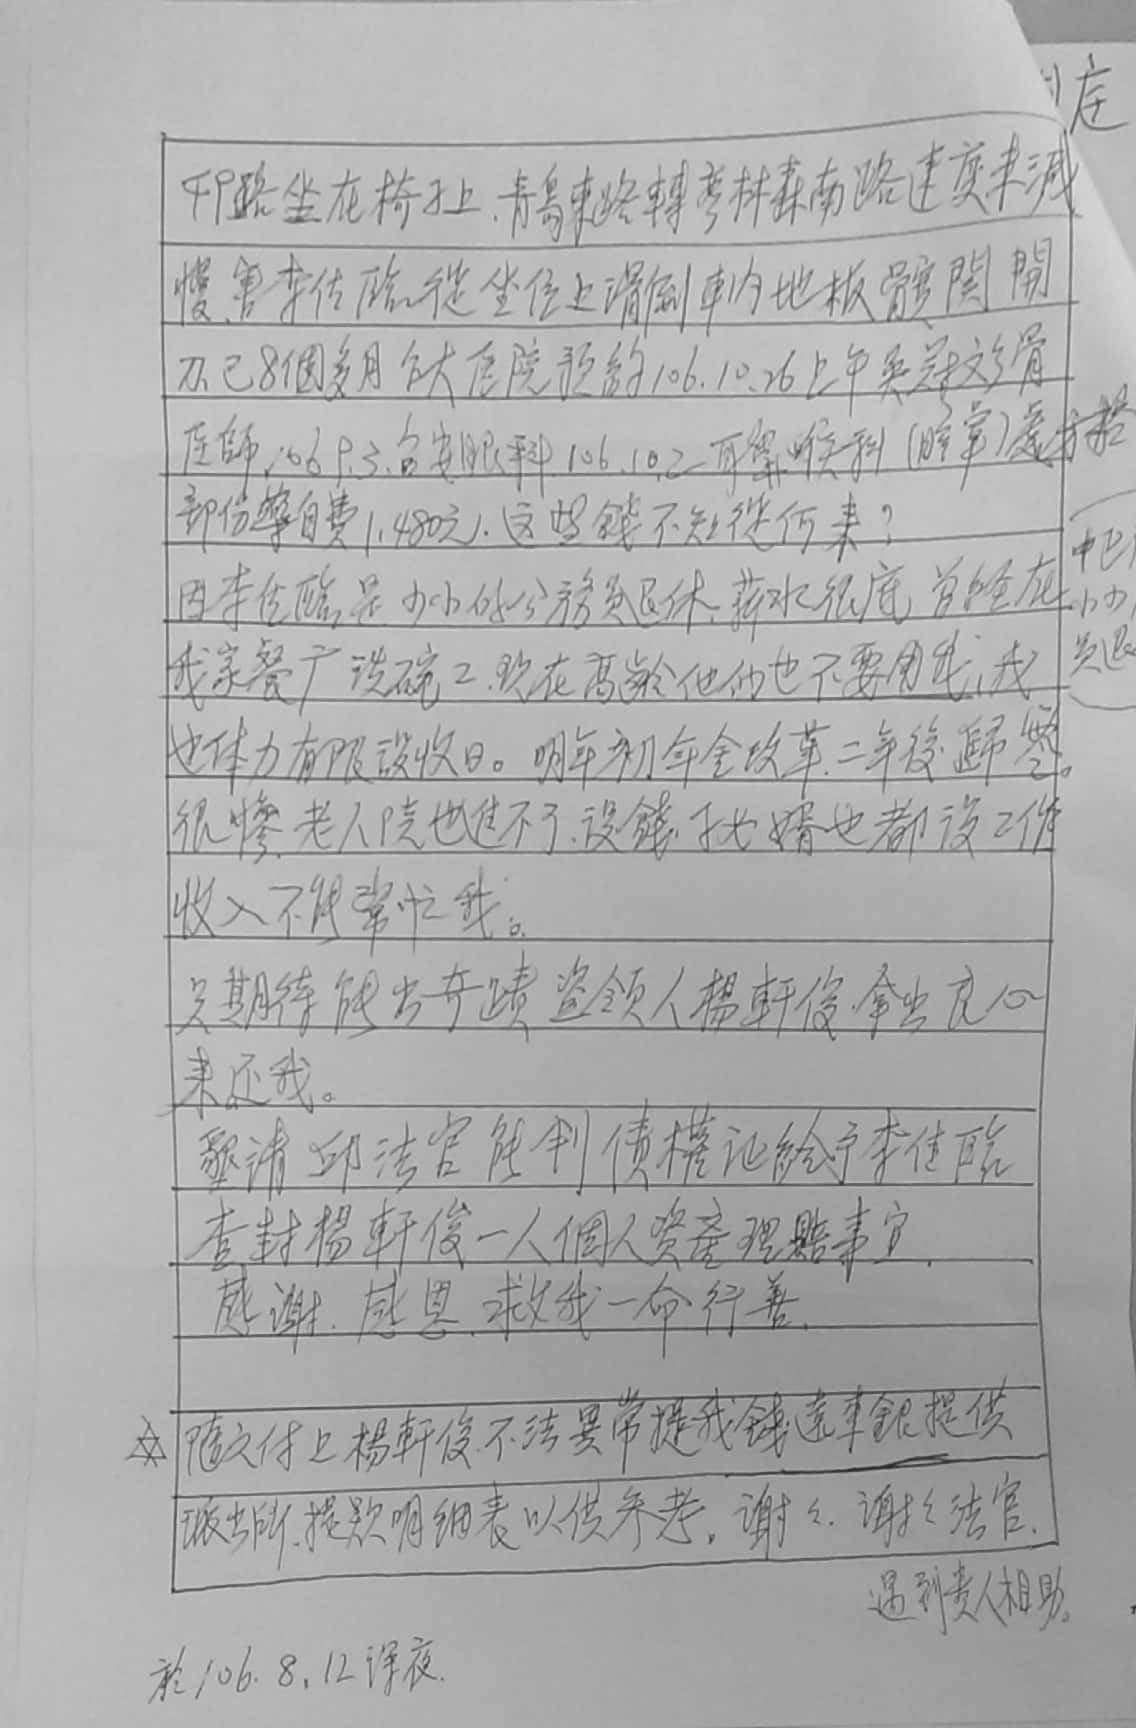 庄
路坐在椅子上.青島東路轉彎林森南路速度未減
慢,害李佳臨從坐位上滑倒車內地板髖関開
刀.已8個多月台大医院預約106.10.26上午骨
医師.106.9.3.眼科.106.10.2耳鼻喉科(暈)
部份自費1,480元.这些錢不知從何来?
因李佳臨是小小的公務員退休.薪水很底,曾経在
我家餐厅洗碗工.現在高齡他们也不要用我,我
也体力有限没收入。明年初年金改革.二年後歸零。
很慘.老人院也進不了.没錢.子女婿也都没工作
收入不能幫忙我。
只期待能出奇蹟盜領人楊軒俊.拿出良心
来还我。
敬請邱法官能判債權证給予李佳臨
查封楊軒俊一人個人資產理賠事宜.
感謝.感恩.救我一命行善.
隨文付上楊軒俊不法異常提我錢遠東銀提供
派出所.提款明細表以供参考。謝々.謝々法官.
遇到貴人相助。
於106.8.12深夜.